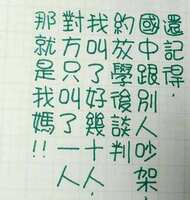 還記得，
國中跟別人吵架，
約放學後談判
我叫了好幾十人，
對方只叫了一人
那就是我媽!!